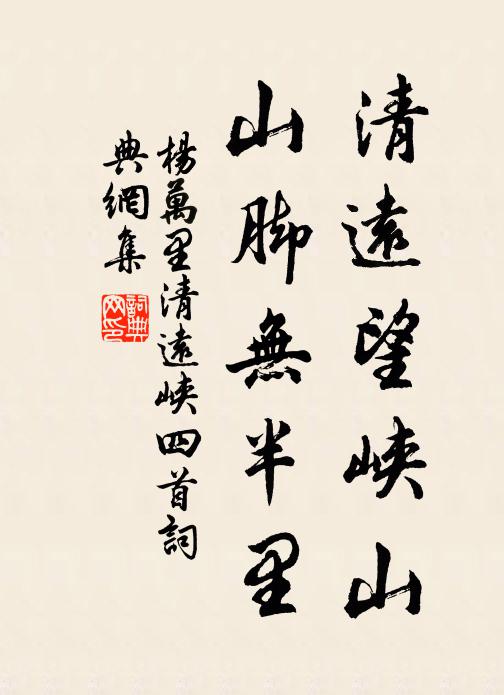 清遠望峽山
山脚無半里
楊萬里清遠峽四首詞
典網集
詞典网印